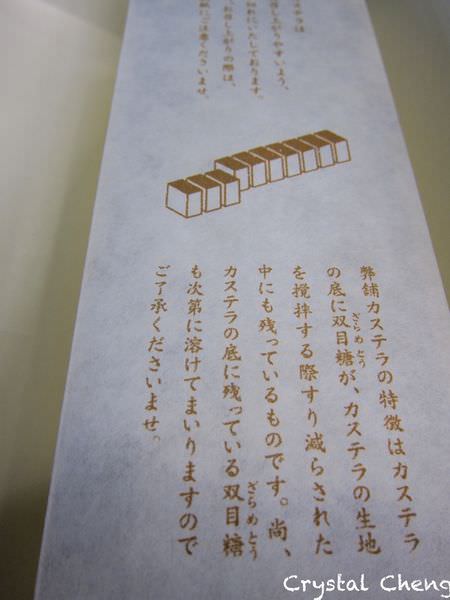 カステラは
お召し上がりやすいよう、
切れにいたしております。
お召し上がりの際は、
紙にご注意くださいませ。
弊舗カステラの特徴はカステラ
の底に双目糖が、カステラの生地
ざらめとう
を撹拌する際すり減らされた
中にも残っているものです。尚、
カステラの底に残っている双目糖
ざらめとう
も次第に溶けてまいりますので
ご了承くださいませ。
Crystal Cheng